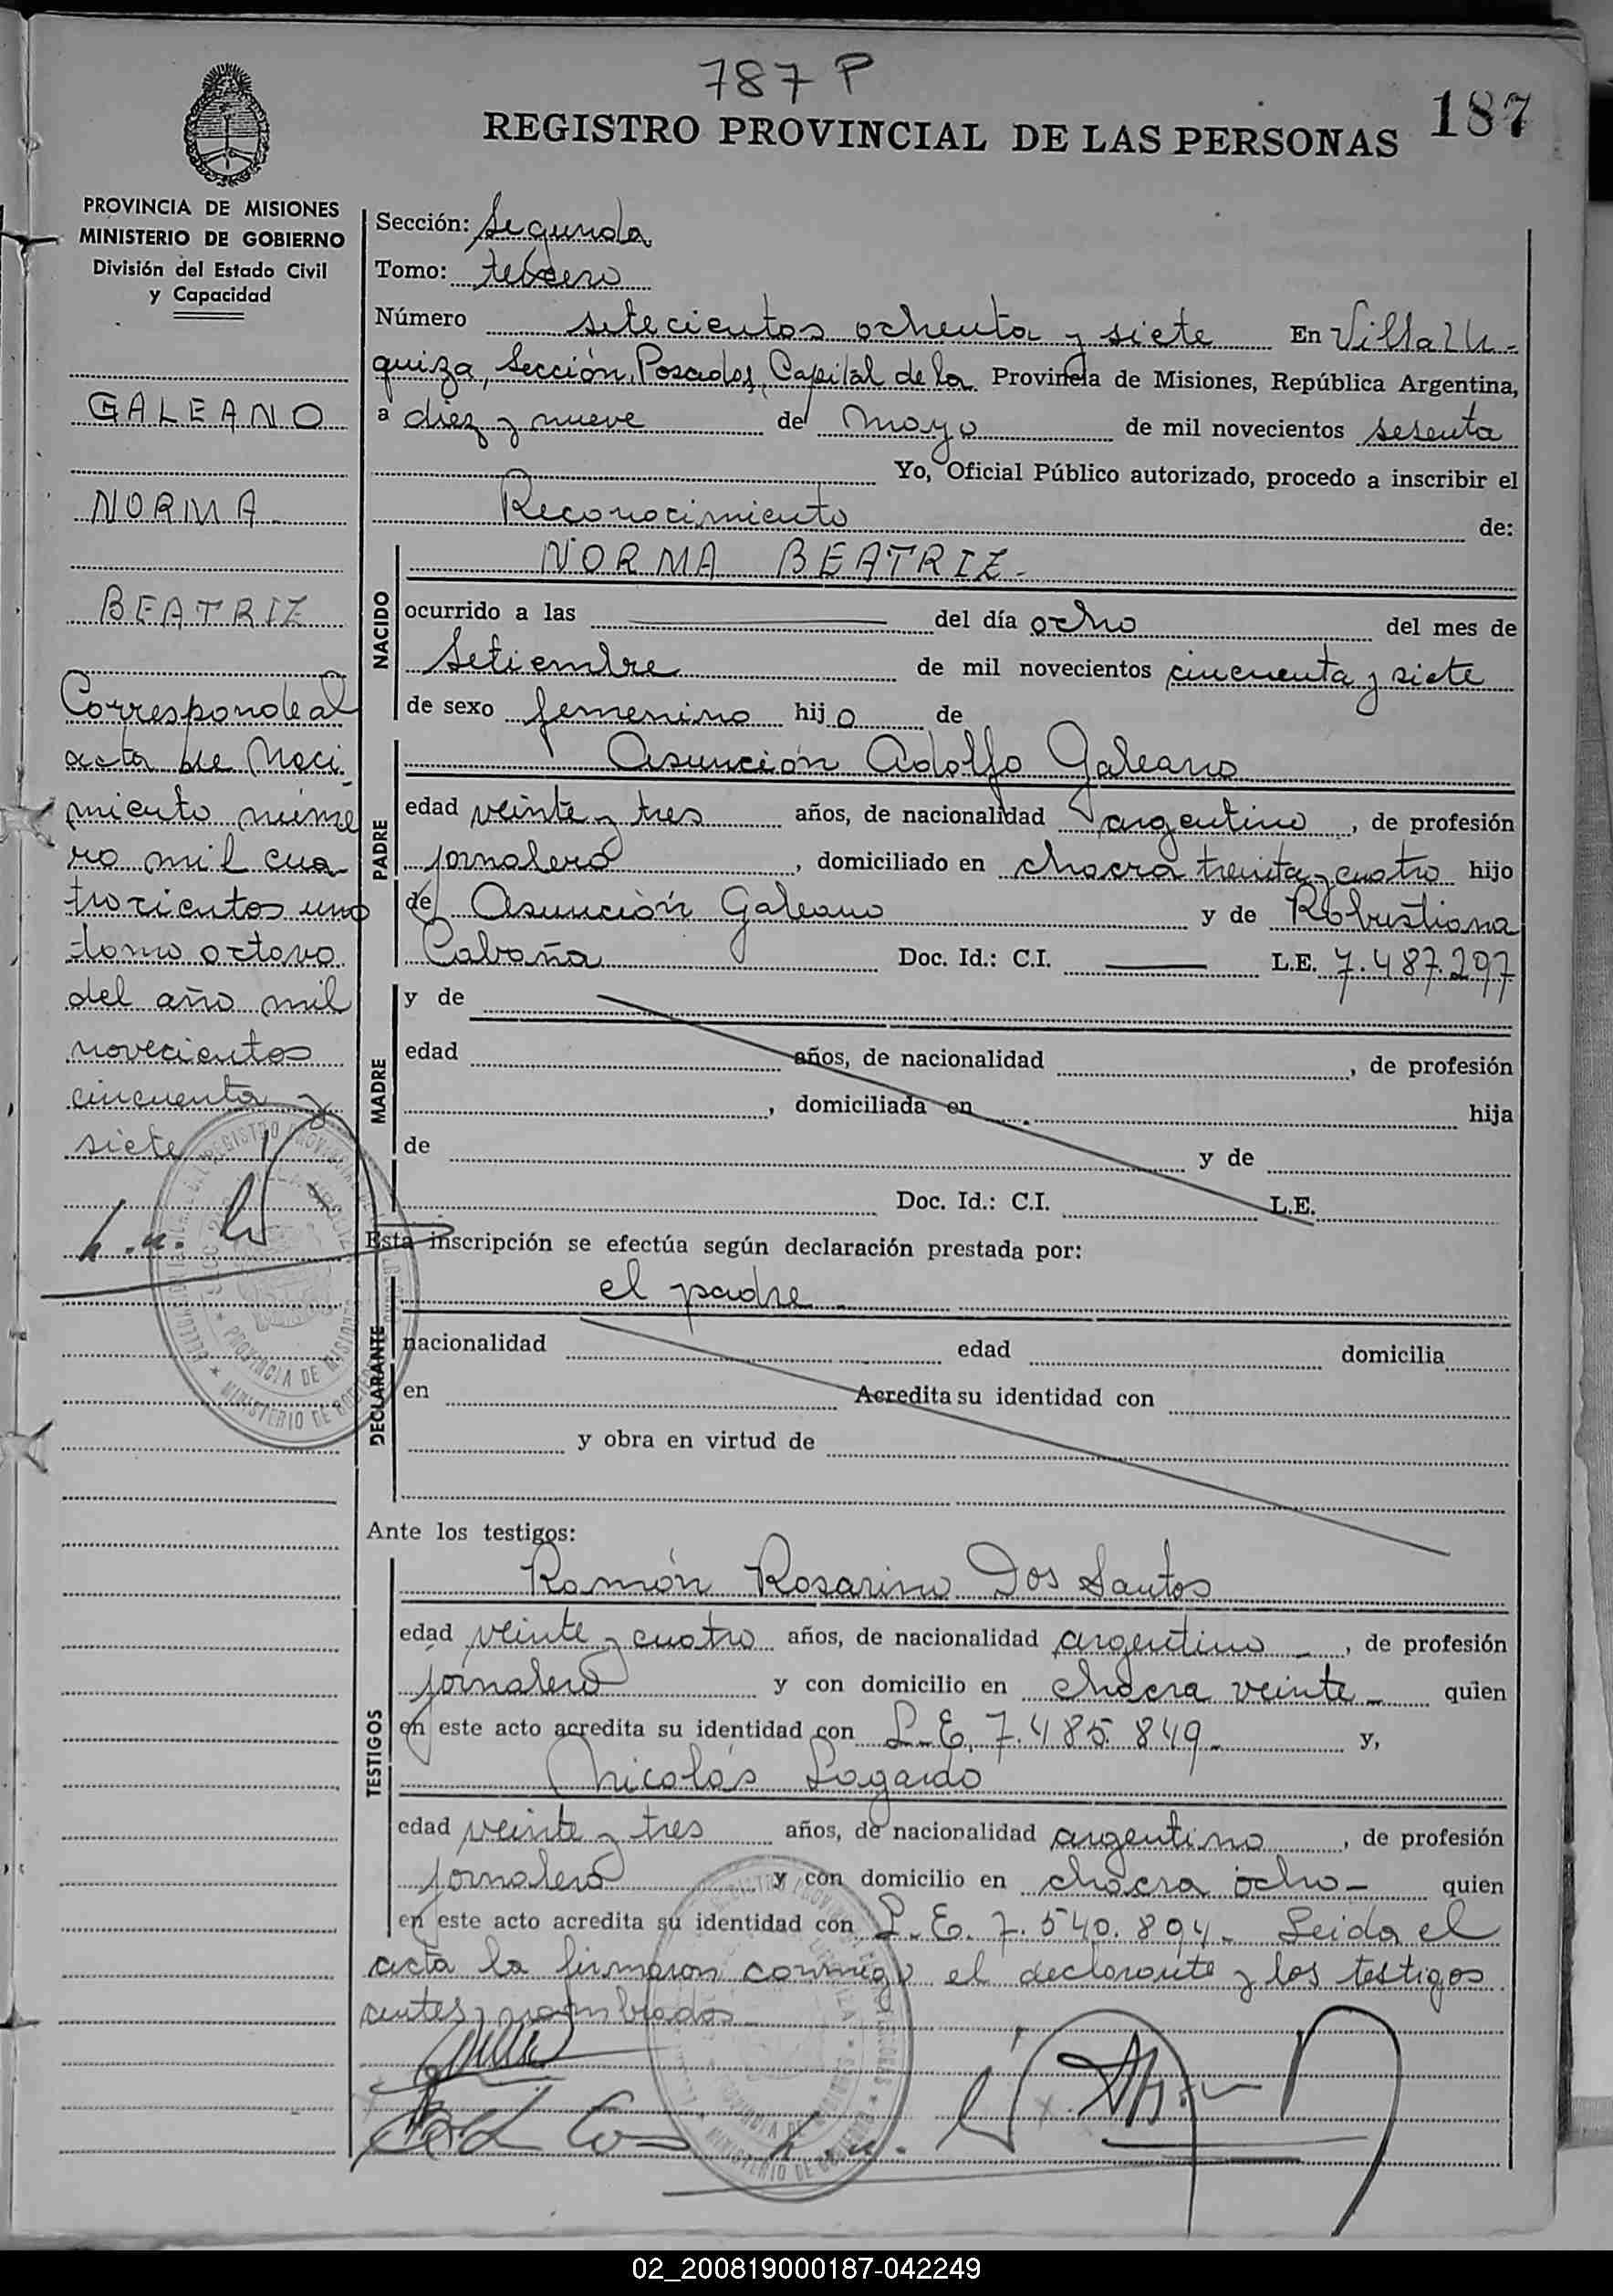 787 P
REGISTRO PROVINCIAL DE LAS PERSONAS 187
PROVINCIA DE MISIONES
MINISTERIO DE GOBIERNO
División del Estado Civil
y Capacidad
GALEANO
NORMA
BEATRIZ
Corresponde al
acta de Naci
miento núme
ro mil cua
trocientos uno
tomo octavo
del año mil
novecientos
cincuenta y
siete
Sección: Segunda
Tomo: tercero
Número setecientos ochenta y siete En Villa Ur-
quiza, Sección, Posadas, Capital de la Provincia de Misiones, República Argentina,
a diez y nueve de mayo de mil novecientos sesenta
Yo, Oficial Público autorizado, procedo a inscribir el
Reconocimiento de:
NACIDO
NORMA BEATRIZ.
ocurrido a las del día ocho del mes de
Setiembre de mil novecientos cincuenta y siete
de sexo femenino hijo de
PADRE
Asunción Adolfo Galeano
edad veinte y tres años, de nacionalidad argentino, de profesión
jornalero, domiciliado en chacra treinta y cuatro hijo
de Asunción Galeano y de Robustiana
Cabaña Doc. Id.: C.I. L.E. 7.487.297
MADRE
y de
edad años, de nacionalidad , de profesión
, domiciliada en hija
de y de
Doc. Id.: C.I. L.E.
Esta inscripción se efectúa según declaración prestada por:
DECLARANTE
el padre
nacionalidad edad domicilia
en Acredita su identidad con
y obra en virtud de
Ante los testigos:
TESTIGOS
Ramón Rosarino Dos Santos
edad veinte y cuatro años, de nacionalidad argentino, de profesión
jornalero y con domicilio en chacra veinte quien
en este acto acredita su identidad con L.E. 7.485.849 y,
Nicolás Logardo
edad veinte y tres años, de nacionalidad argentino, de profesión
jornalero y con domicilio en chacra ocho quien
en este acto acredita su identidad con L.E. 7.540.894. Leida el
acta la firmaron conmigo el declarante y los testigos
antes nombrados
02_200819000187-042249